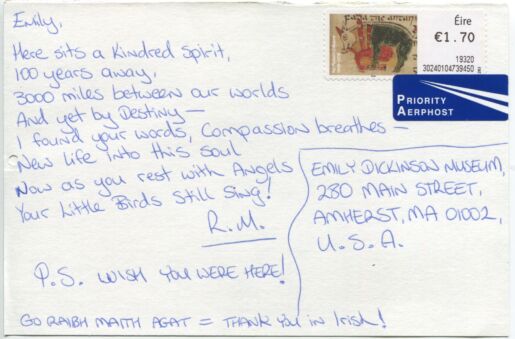 Emily,
Here sits a Kindred Spirit,
100 years away,
3000 miles between our worlds
And yet by Destiny —
I found your words, Compassion breathes —
New life into this soul
Now as you rest with Angels
Your Little Birds Still Sing!
R.M.
P.S. WISH YOU WERE HERE!
GO RAIBH MAITH AGAT = THANK YOU in Irish!
Éire
€1.70
19320
30240104739450
PRIORITY
AERPHOST
EMILY DICKINSON MUSEUM,
280 MAIN STREET,
AMHERST, MA 01002,
U.S.A.